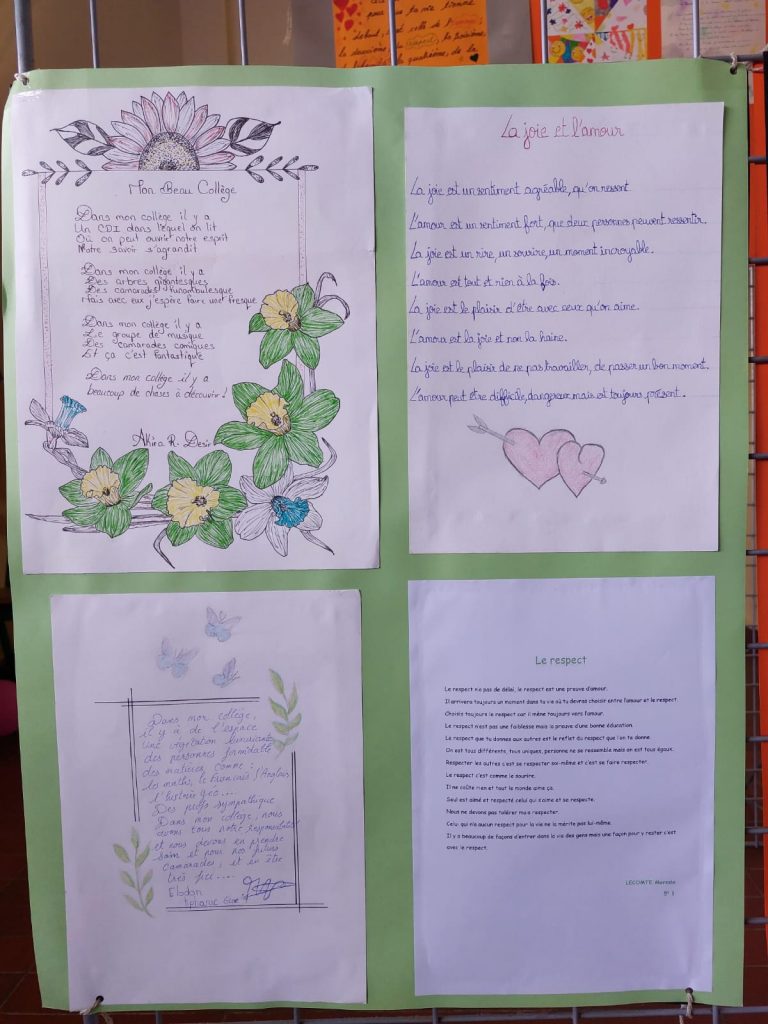 pour
debout,
la troisième,
la quatrième, de la
Mon Beau Collège
Dans mon collège il y a
Un CDI dans lequel on lit
Où on peut ouvrir notre esprit
Notre savoir s'agrandit
Dans mon collège il y a
Des arbres gigantesques
Des camarades funambulesque
Mais avec eux j'espère faire une fresque
Dans mon collège il y a
Le groupe de musique
Des camarades comiques
Et ça c'est fantastique
Dans mon collège il y a
beaucoup de choses à découvrir !
Akira R. Desir
La joie et l'amour
La joie est un sentiment agréable, qu'on ressent.
L'amour est un sentiment fort, que deux personnes peuvent ressentir.
La joie est un rire, un sourire, un moment incroyable.
L'amour est tout et rien à la fois.
La joie est le plaisir d'être avec ceux qu'on aime.
L'amour est la joie et non la haine.
La joie est le plaisir de ne pas travailler, de passer un bon moment.
L'amour peut être difficile, dangereux mais est toujours présent.
Dans mon collège,
il y a de l'espace
une végétation luxuriante
des personnes formidable
des matières comme :
les maths, le français l'Anglais
l'histoire géo....
Des profs sympathique
Dans mon collège, nous
avons tous notre responsabilité
et nous devons en prendre
soin et pour nos futurs
camarades, et en être
très fier....
Elodan
Le respect
Le respect n'a pas de délai, le respect est une preuve d'amour.
Il arrivera toujours un moment dans ta vie où tu devras choisir entre l'amour et le respect.
Choisis toujours le respect car il mène toujours vers l'amour.
Le respect n'est pas une faiblesse mais la preuve d'une bonne éducation.
Le respect que tu donnes aux autres est le reflet du respect que l'on te donne.
On est tous différents, tous uniques, personne ne se ressemble mais on est tous égaux.
Respecter les autres c'est se respecter soi-même et c'est se faire respecter.
Le respect c'est comme le sourire.
Il ne coûte rien et tout le monde aime ça.
Seul est aimé et respecté celui qui s'aime et se respecte.
Nous ne devons pas tolérer mais respecter.
Celui qui n'a aucun respect pour la vie ne la mérite pas lui-même.
Il y a beaucoup de façons d'entrer dans la vie des gens mais une façon pour y rester c'est
avec le respect.
LECOMTE
5e 1